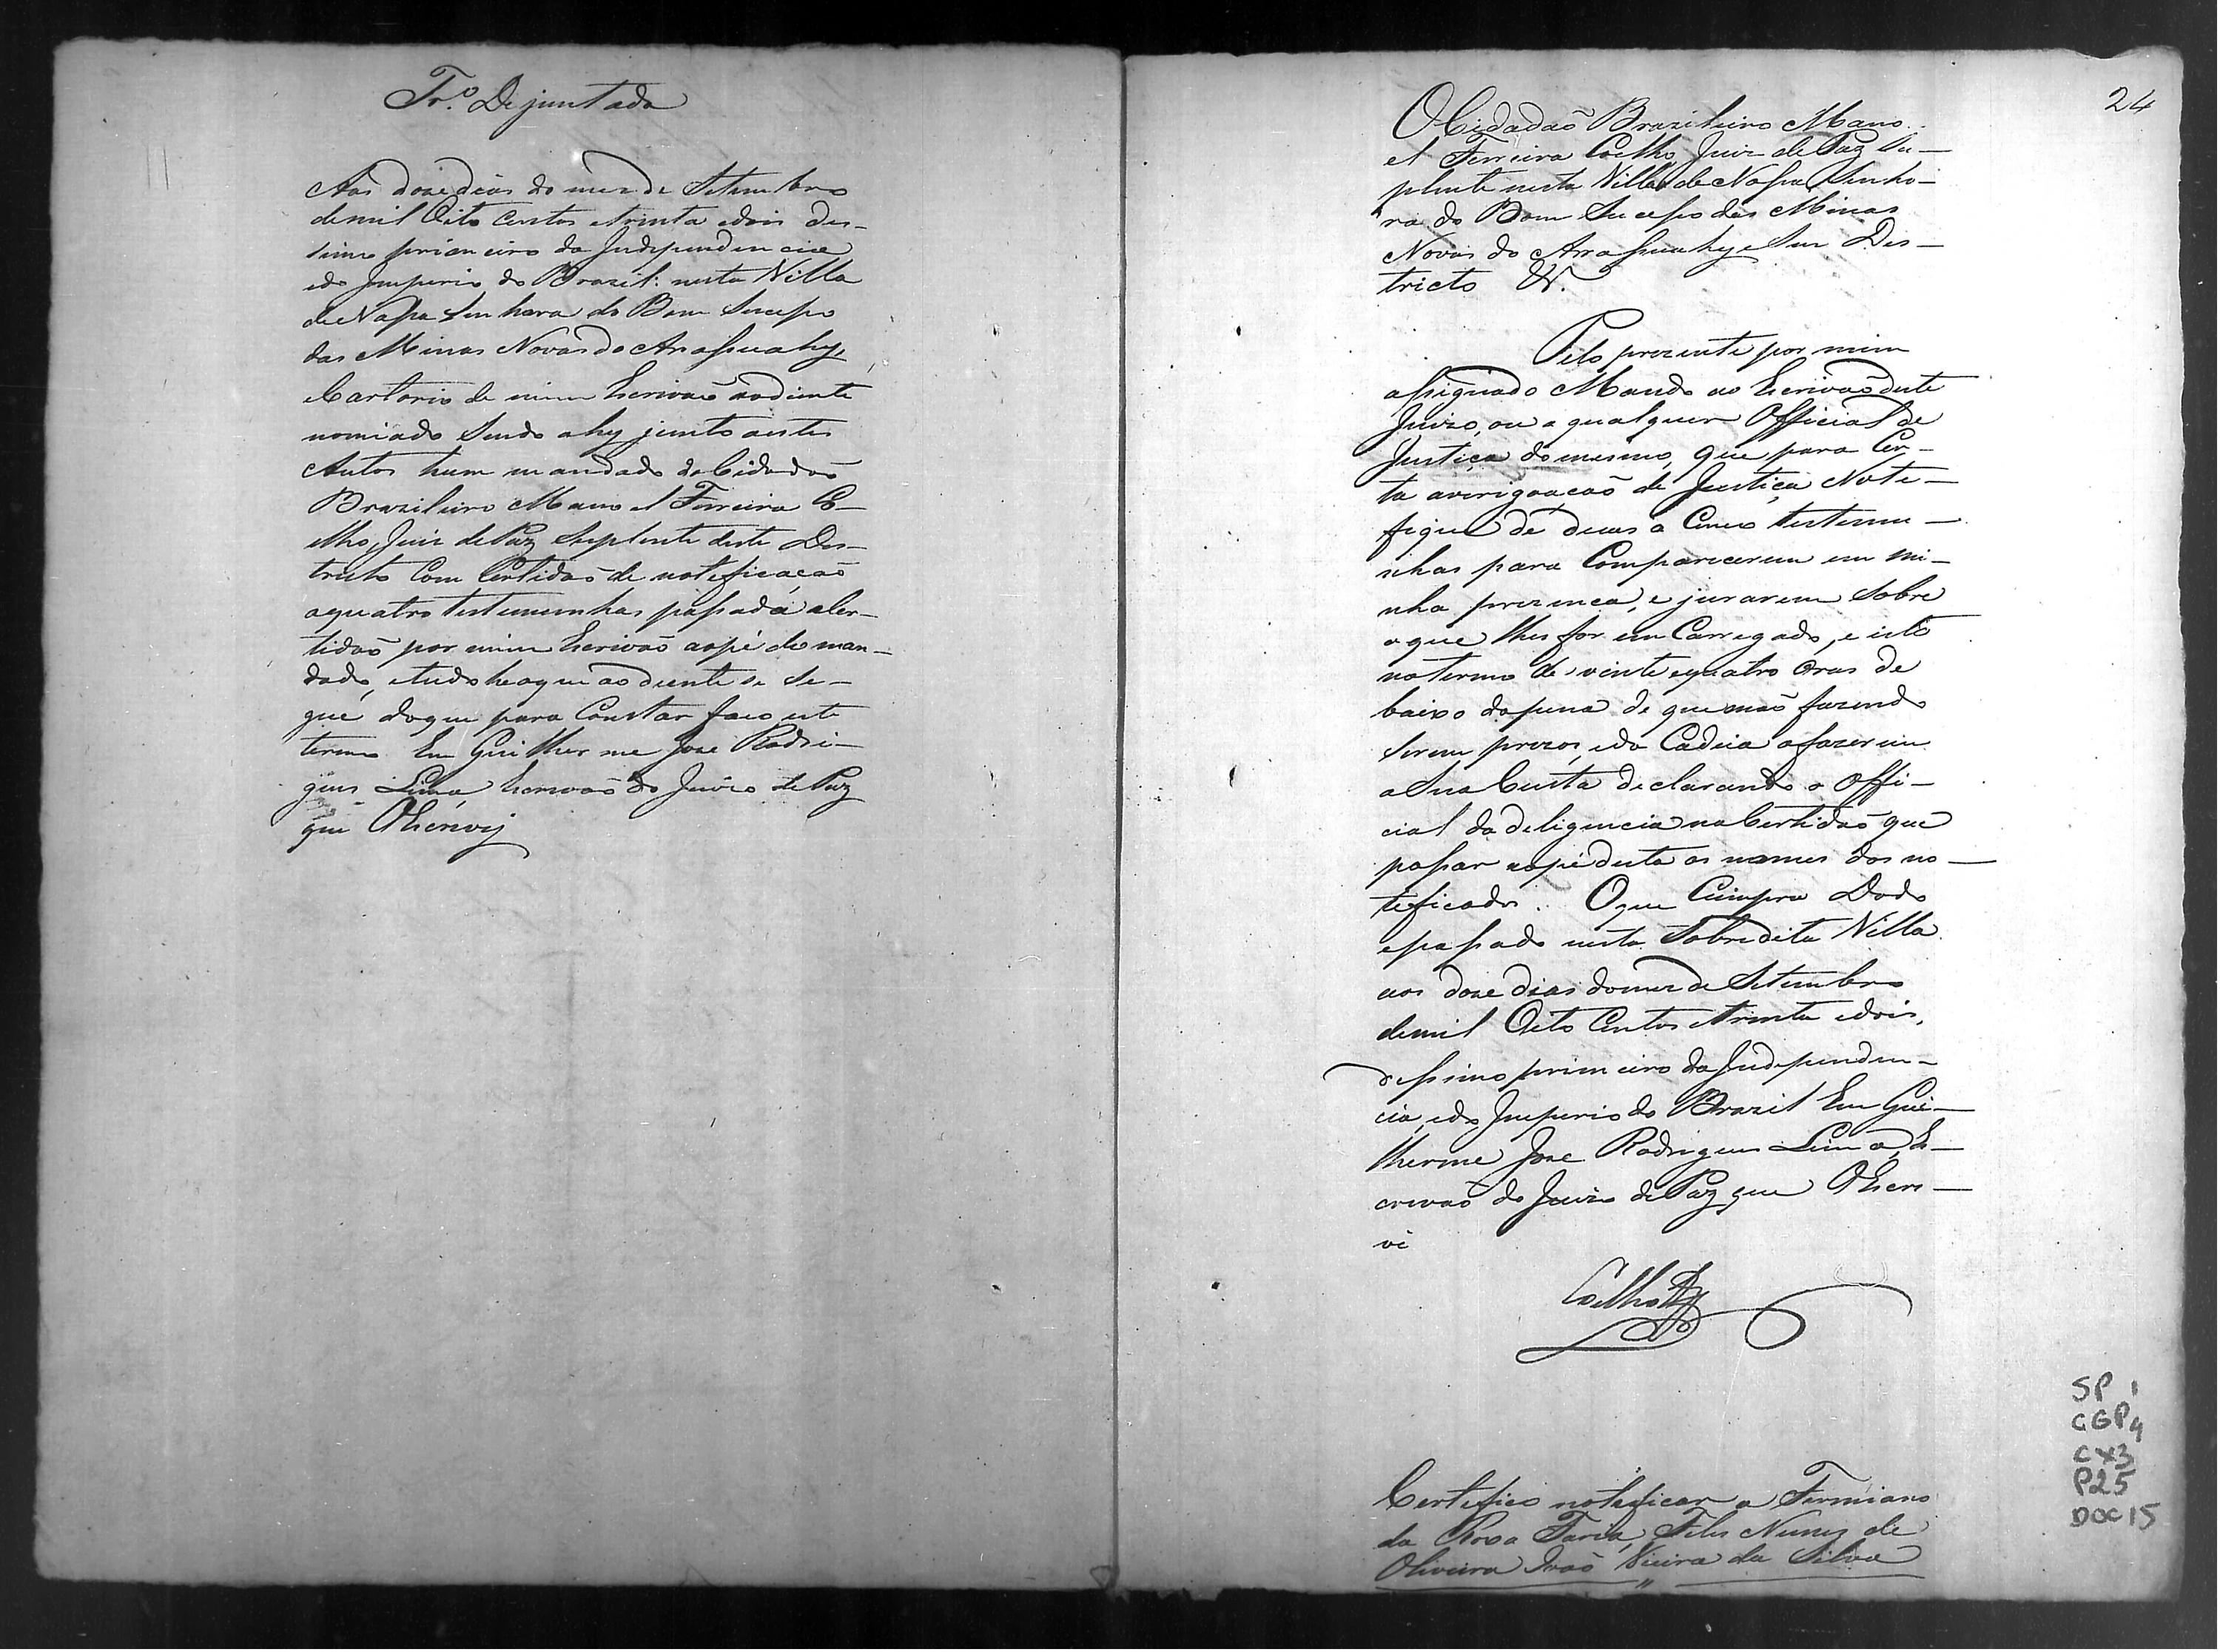 Tr.º De juntada
Aos doze dias do mez de Setembro
de mil Oito centos e trinta e dois des-
simo primeiro da Independencia
e do Imperio do Brazil: nesta Villa
de Nossa Senhora do Bom Sucesso
das Minas Novas do Arassuahy,
Cartorio de mim Escrivaõ aodiante
nomiado Sendo ahy junto a estes
Autos hum mandado do Cidadaõ
Brazileiro Manoel Ferreira Co-
elho, Juiz de Paz Suplente deste Des-
tricto Com Certidaõ de noteficacaõ
a quatro testemunhas passada a Cer-
tidaõ por mim Escrivaõ ao pé do man-
dado, e tudo he o que ao diente se Se-
gue do que para Constar faço este
termo Eu Guilherme Jose Rodri-
gues Lima Escrivaõ do Juizo de Paz
que O Escrevy
24
O Cidadaõ Brazileiro Mano-
el Ferreira Coelho, Juiz de Paz Su-
plente nesta Villa de Nossa Senho-
ra do Bom Sucesso das Minas
Novas do Arassuahy e Seu Des-
tricto &.
Pelo prezente por mim
assignado Mando ao Escrivaõ deste
Juizo, ou a qualquer Official de
Justiça do mesmo, que para Cer-
ta averigoaçaõ de Justiça Note-
fique de duas a Cinco testemu-
nhas para Comparecerem em mi-
nha prezenca, e jurarem Sobre
o que lhes for em Carregado, e isto
no termo de vinte e quatro oras de
baixo da pena de que naõ fazendo
Serem prezos, e da Cadeia o fazerem
a Sua Custa declarando o Offi-
cial da deligencia na Certidaõ que
passar ao pé desta os nomes dos no-
teficados. O que Cumpra Dado
e passado nesta Sobredita Villa
aos doze dias do mez de Setembro
de mil Oito Centos e trinta e dois,
dessimo primeiro da Independen-
cia, e do Imperio do Brazil Eu Gui-
lherme Jose Rodrigues Lima, Es-
crivaõ do Juizo de Paz que O Escre-
vi
Coelho
Certefico noteficar a Fermiano
da Roxa Faria, Felis Nunes de
Oliveira Joaõ Vieira da Silva
SP 1
CGP4
CX3
P25
DOC 15